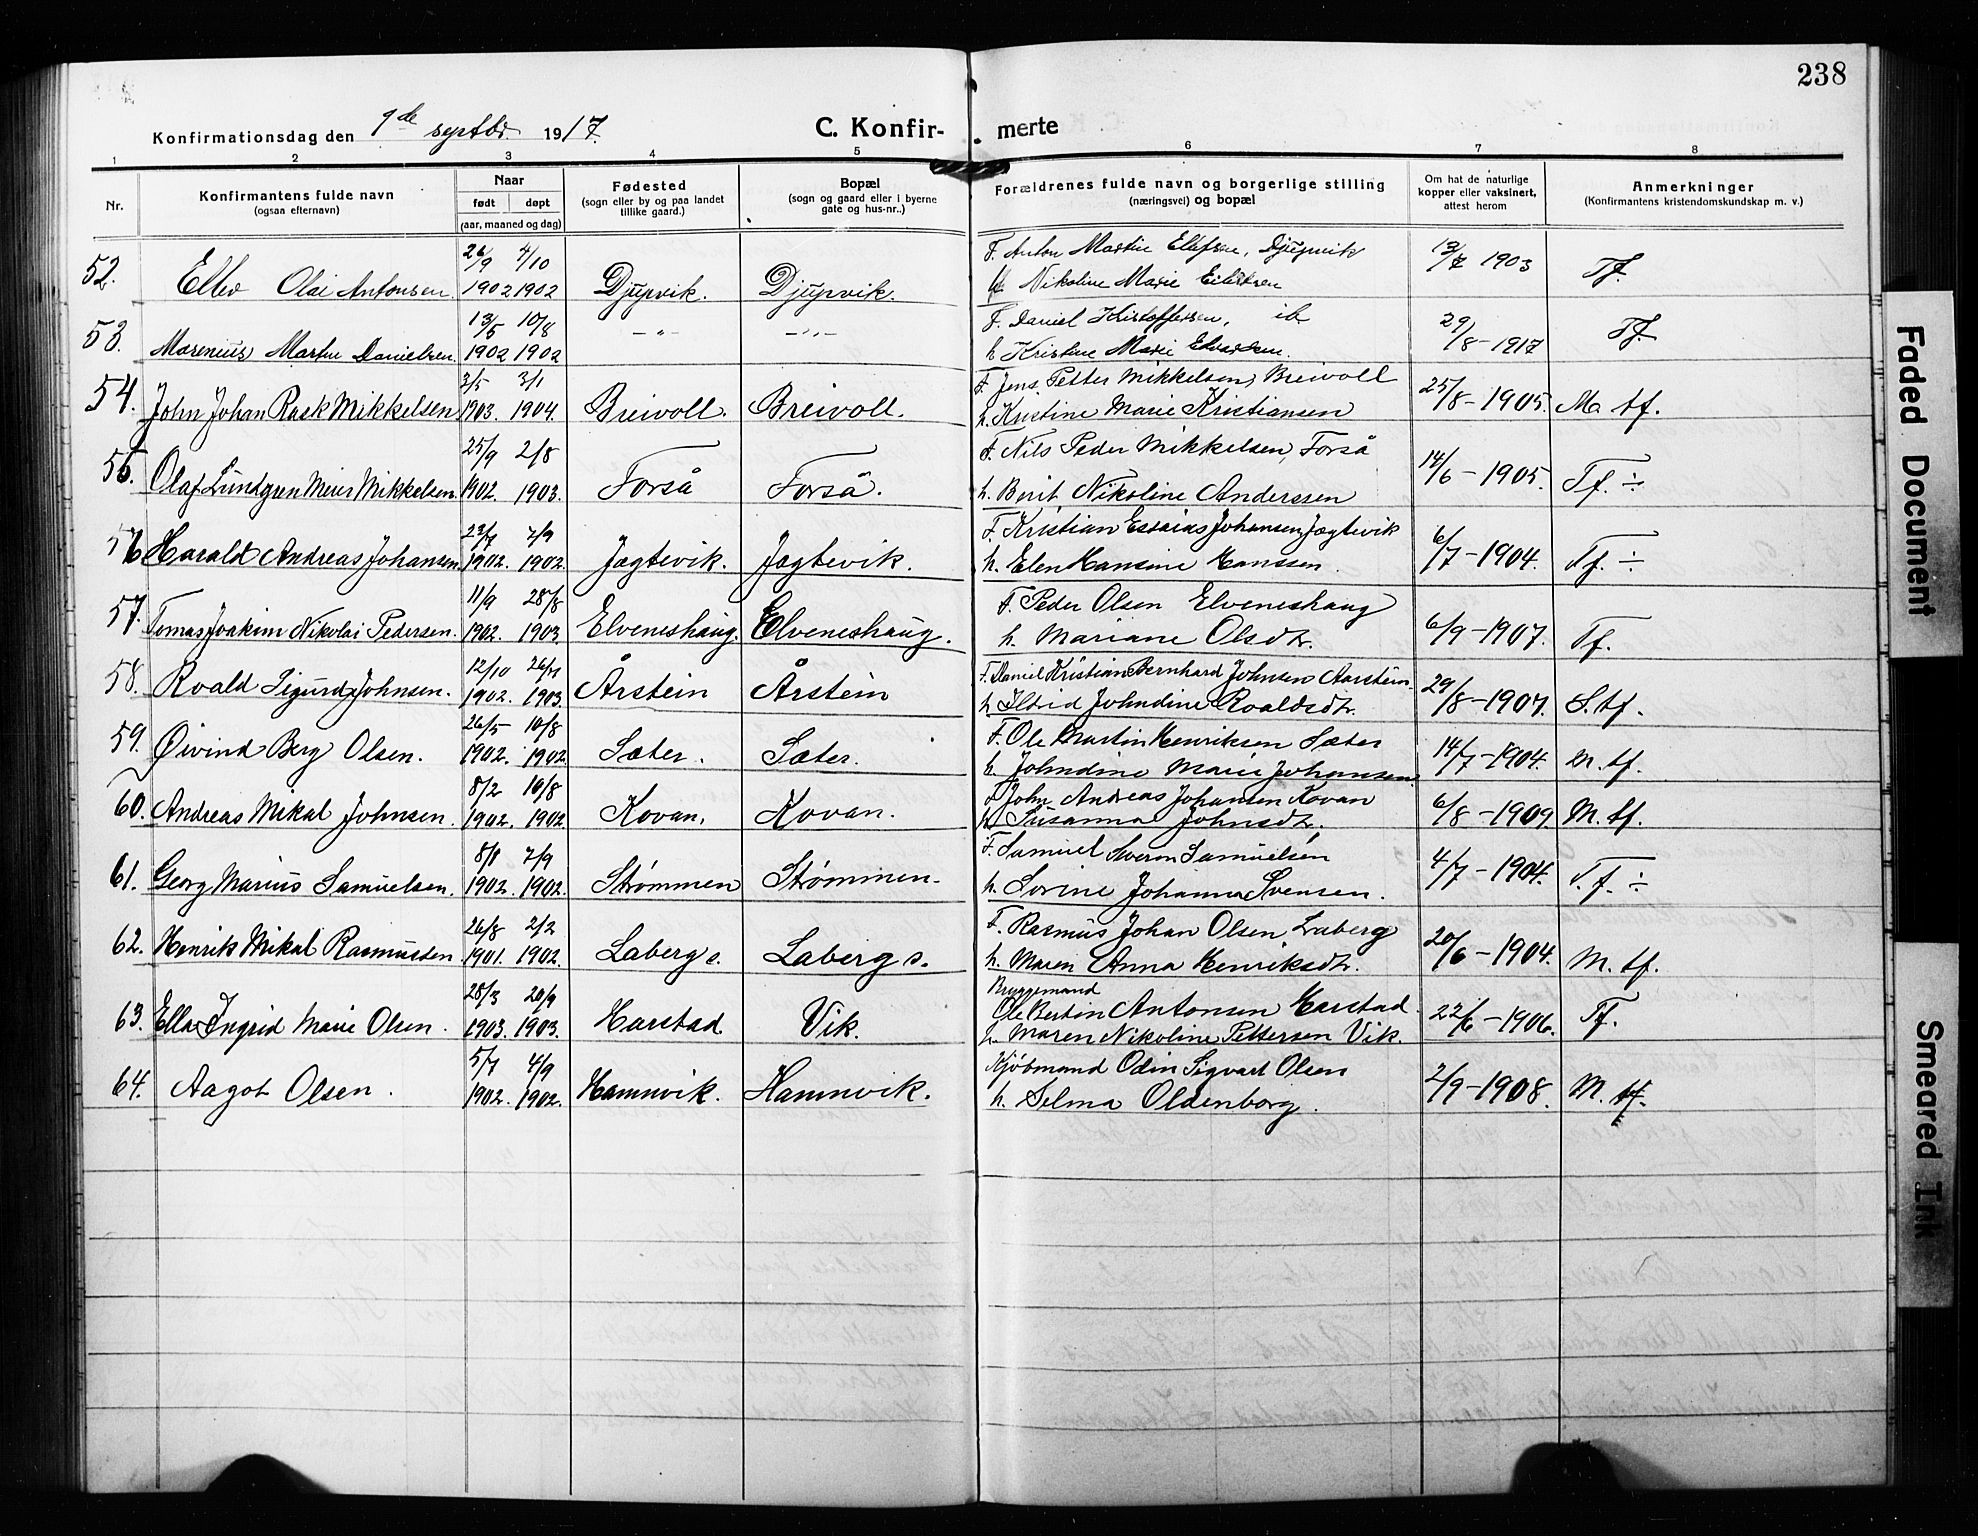 238
Konfirmationsdag den 9de septbr. 1917.
C. Konfirmerte
1 2 3 4 5 6 7 8
Nr.
Konfirmantens fulde navn
(ogsaa efternavn)
Naar
født døpt
(aar, maaned og dag)
Fødested
(sogn eller by og paa landet
tillike gaard.)
Bopæl
(sogn og gaard eller i byerne
gate og hus-nr..)
Forældrenes fulde navn og borgerlige stilling
(næringsvei) og bopæl
Om hat de naturlige
kopper eller vaksinert,
attest herom
Anmerkninger
(Konfirmantens kristendomskundskap m. v.)
26/9 4/10 F. Anton Martin Elefsen, Djupvik
52. Ellev Olai Antonsen. 1902 1902 Djupvik. Djupvik. Nikoline Marie Eilertsen 1903 Tf.
13/5 10/8 F. Daniel Kristoffersen, ib
53. Marenius Martin Danielsen. 1902 1902 —„— —„— h Kristine Marie Edvardsen. 29/8-1917 Tf.
3/5 3/1 F. Jens Petter Mikkelsen, Breivoll
54. John Johan Rask Mikkelsen 1903. 1904. Breivoll. Breivoll. h. Kristine Marie Kristiansen 25/8-1905. M tf.
25/9 2/8 F. Nils Peder Mikkelsen, Forså
55. Olaf Lundgren Meier Mikkelsen. 1902. 1903. Forså Forså. h. Berit Nikoline Anderssen 14/6-1905. Tf. ÷
23/7 7/9 F. Kristian Esaias Johansen Jægtevik
56 Harald Andreas Johansen. 1902. 1902. Jægtevik. Jægtevik. h. Elen Hansine Hanssen. 6/7-1904. Tf. ÷
11/9 28/8 F. Peder Olsen Elveneshaug
57. Tomas Joakim Nikolai Pedersen. 1902. 1903. Elveneshaug. Elveneshaug. h. Mariane Olsdtr. 6/9-1907. Tf.
12/10 26/7 F. Daniel Kristian Bernhard Johnsen Aarstein
58. Roald Sigurd Johnsen. 1902. 1903. Årstein Årstein h. Johndine Roaldsdtr. 29/8-1907. S. tf.
26/5 10/8 F. Ole Martin Henriksen Sæter
59. Øivind Berg Olsen. 1902. 1902. Sæter. Sæter. h. Johndine Marie Johansen 14/7-1904. M. tf.
8/2 10/8 F John Andreas Johansen Kovan
60. Andreas Mikal Johnsen. 1902. 1902. Kovan. Kovan. h. Susanna Johnsdtr. 6/8-1909. M. tf.
8/8 7/9 F. Samuel Samuelsen
61. Georg Marius Samuelsen. 1902. 1902. Strømmen Strømmen. h. Lorine Johanna Svensen. 4/7-1904. T. f. ÷
26/8 2/2 F. Rasmus Johan Olsen Laberg
62. Henrik Mikal Rasmussen 1901. 1902. Laberg s. Laberg s. h. Maren Anna Henriksdtr. 20/6-1904. M. tf.
28/3 20/9 Bryggemand
Ole Bertin Antonsen Harstad.
63. Ella Ingrid Marie Olsen. 1903. 1903. Harstad. Vik. h. Maren Nikoline Pettersen Vik. 22/6-1906. Tf.
5/7 4/9 Kjøbmand Odin Sigvart Olsen
64. Aagot Olsen. 1902. 1902. Hamnvik. Hamnvik. h. Selma Oldenborg. 2/9-1908. M. tf.
Faded Document
Smeared Ink